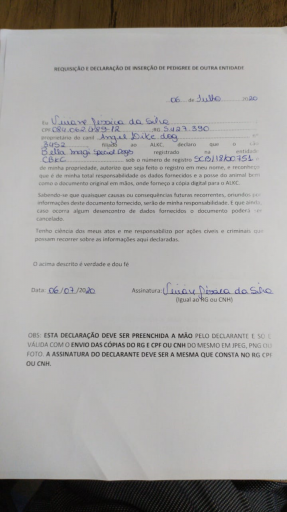 REQUISIÇÃO E DECLARAÇÃO DE INSERÇÃO DE PEDIGREE DE OUTRA ENTIDADE
06 de Julho 2020
Eu Viviane da Silva
CPF RG 3.427.390
proprietário do canil Angel Dike dog nº
3452 filiado ao ALKC, declaro que o cão
Bella registrado na entidade
CBKC sob o número de registro
de minha propriedade, autorizo que seja feito o registro em meu nome, e reconheço
que é de minha total responsabilidade os dados fornecidos e a posse do animal bem
como o documento original em mãos, onde forneço a cópia digital para a ALKC.
Sabendo-se que quaisquer causas ou consequências futuras recorrentes, oriundas por
informações deste documento fornecido, serão de minha responsabilidade. E que ainda,
caso ocorra algum desencontro de dados fornecidos o documento poderá ser
cancelado.
Tenho ciência dos meus atos e me responsabilizo por ações cíveis e criminais que
possam recorrer sobre as informações aqui declaradas.
O acima descrito é verdade e dou fé
Data: 06/07/2020 Assinatura: da Silva
(Igual ao RG ou CNH)
OBS: ESTA DECLARAÇÃO DEVE SER PREENCHIDA A MÃO PELO DECLARANTE E SÓ É
VÁLIDA COM O ENVIO DAS CÓPIAS DO RG E CPF OU CNH DO MESMO EM JPEG, PNG OU
FOTO. A ASSINATURA DO DECLARANTE DEVE SER A MESMA QUE CONSTA NO RG CPF
OU CNH.